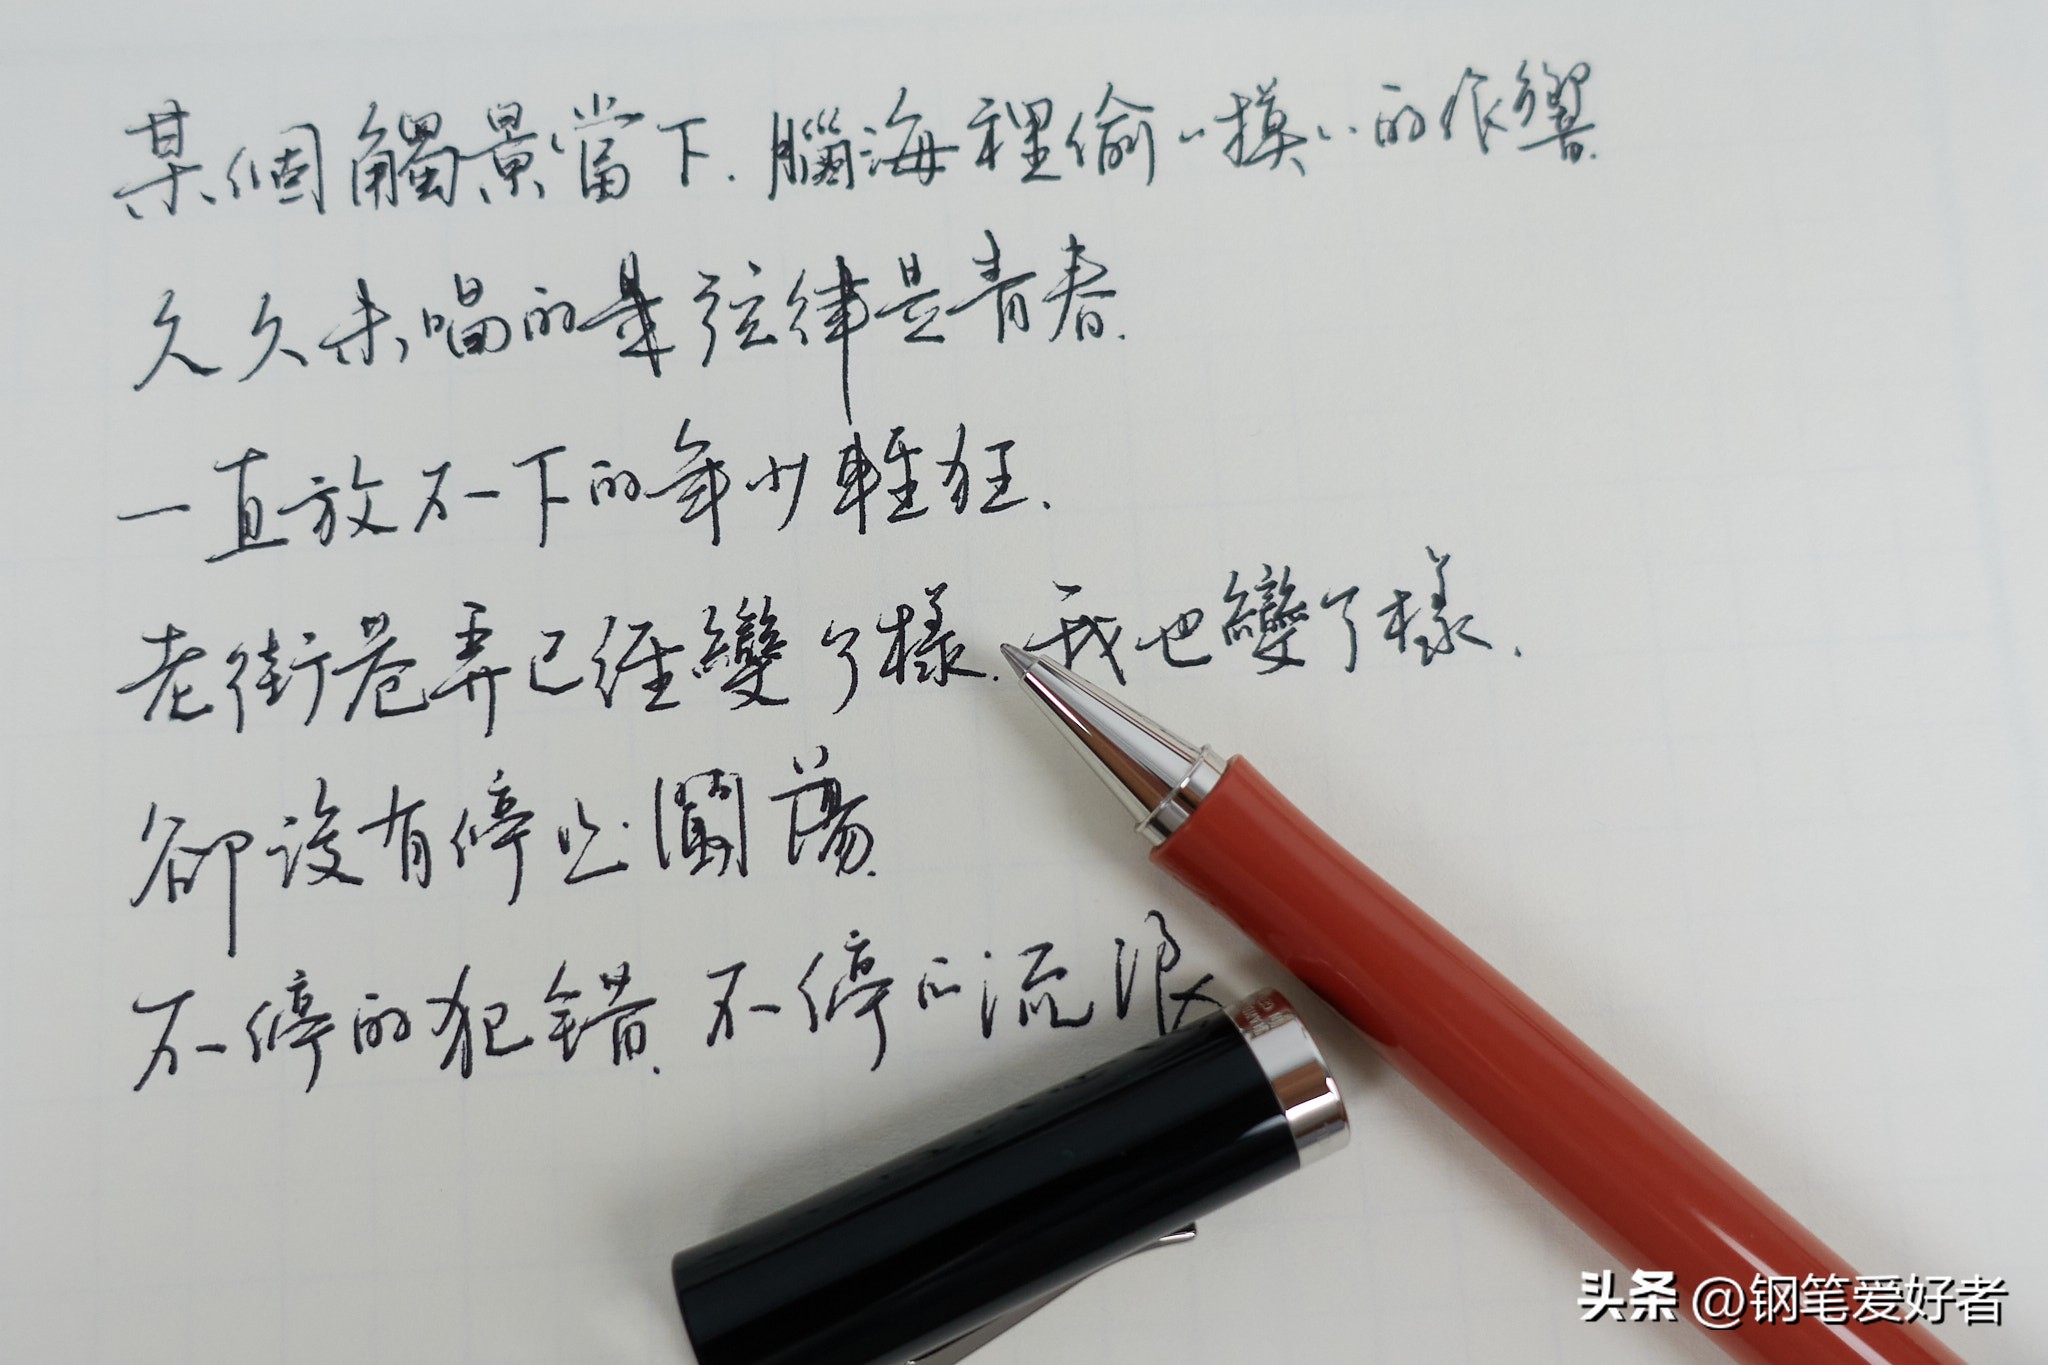 某個觸景當下.腦海裡偷々摸々的作響.
久久未唱的某弦律是青春.
一直放不下的年少輕狂.
老街巷弄已經變了樣.我也變了樣.
卻沒有停止.闖蕩.
不停的犯錯.不停的流浪
头条 @钢笔爱好者